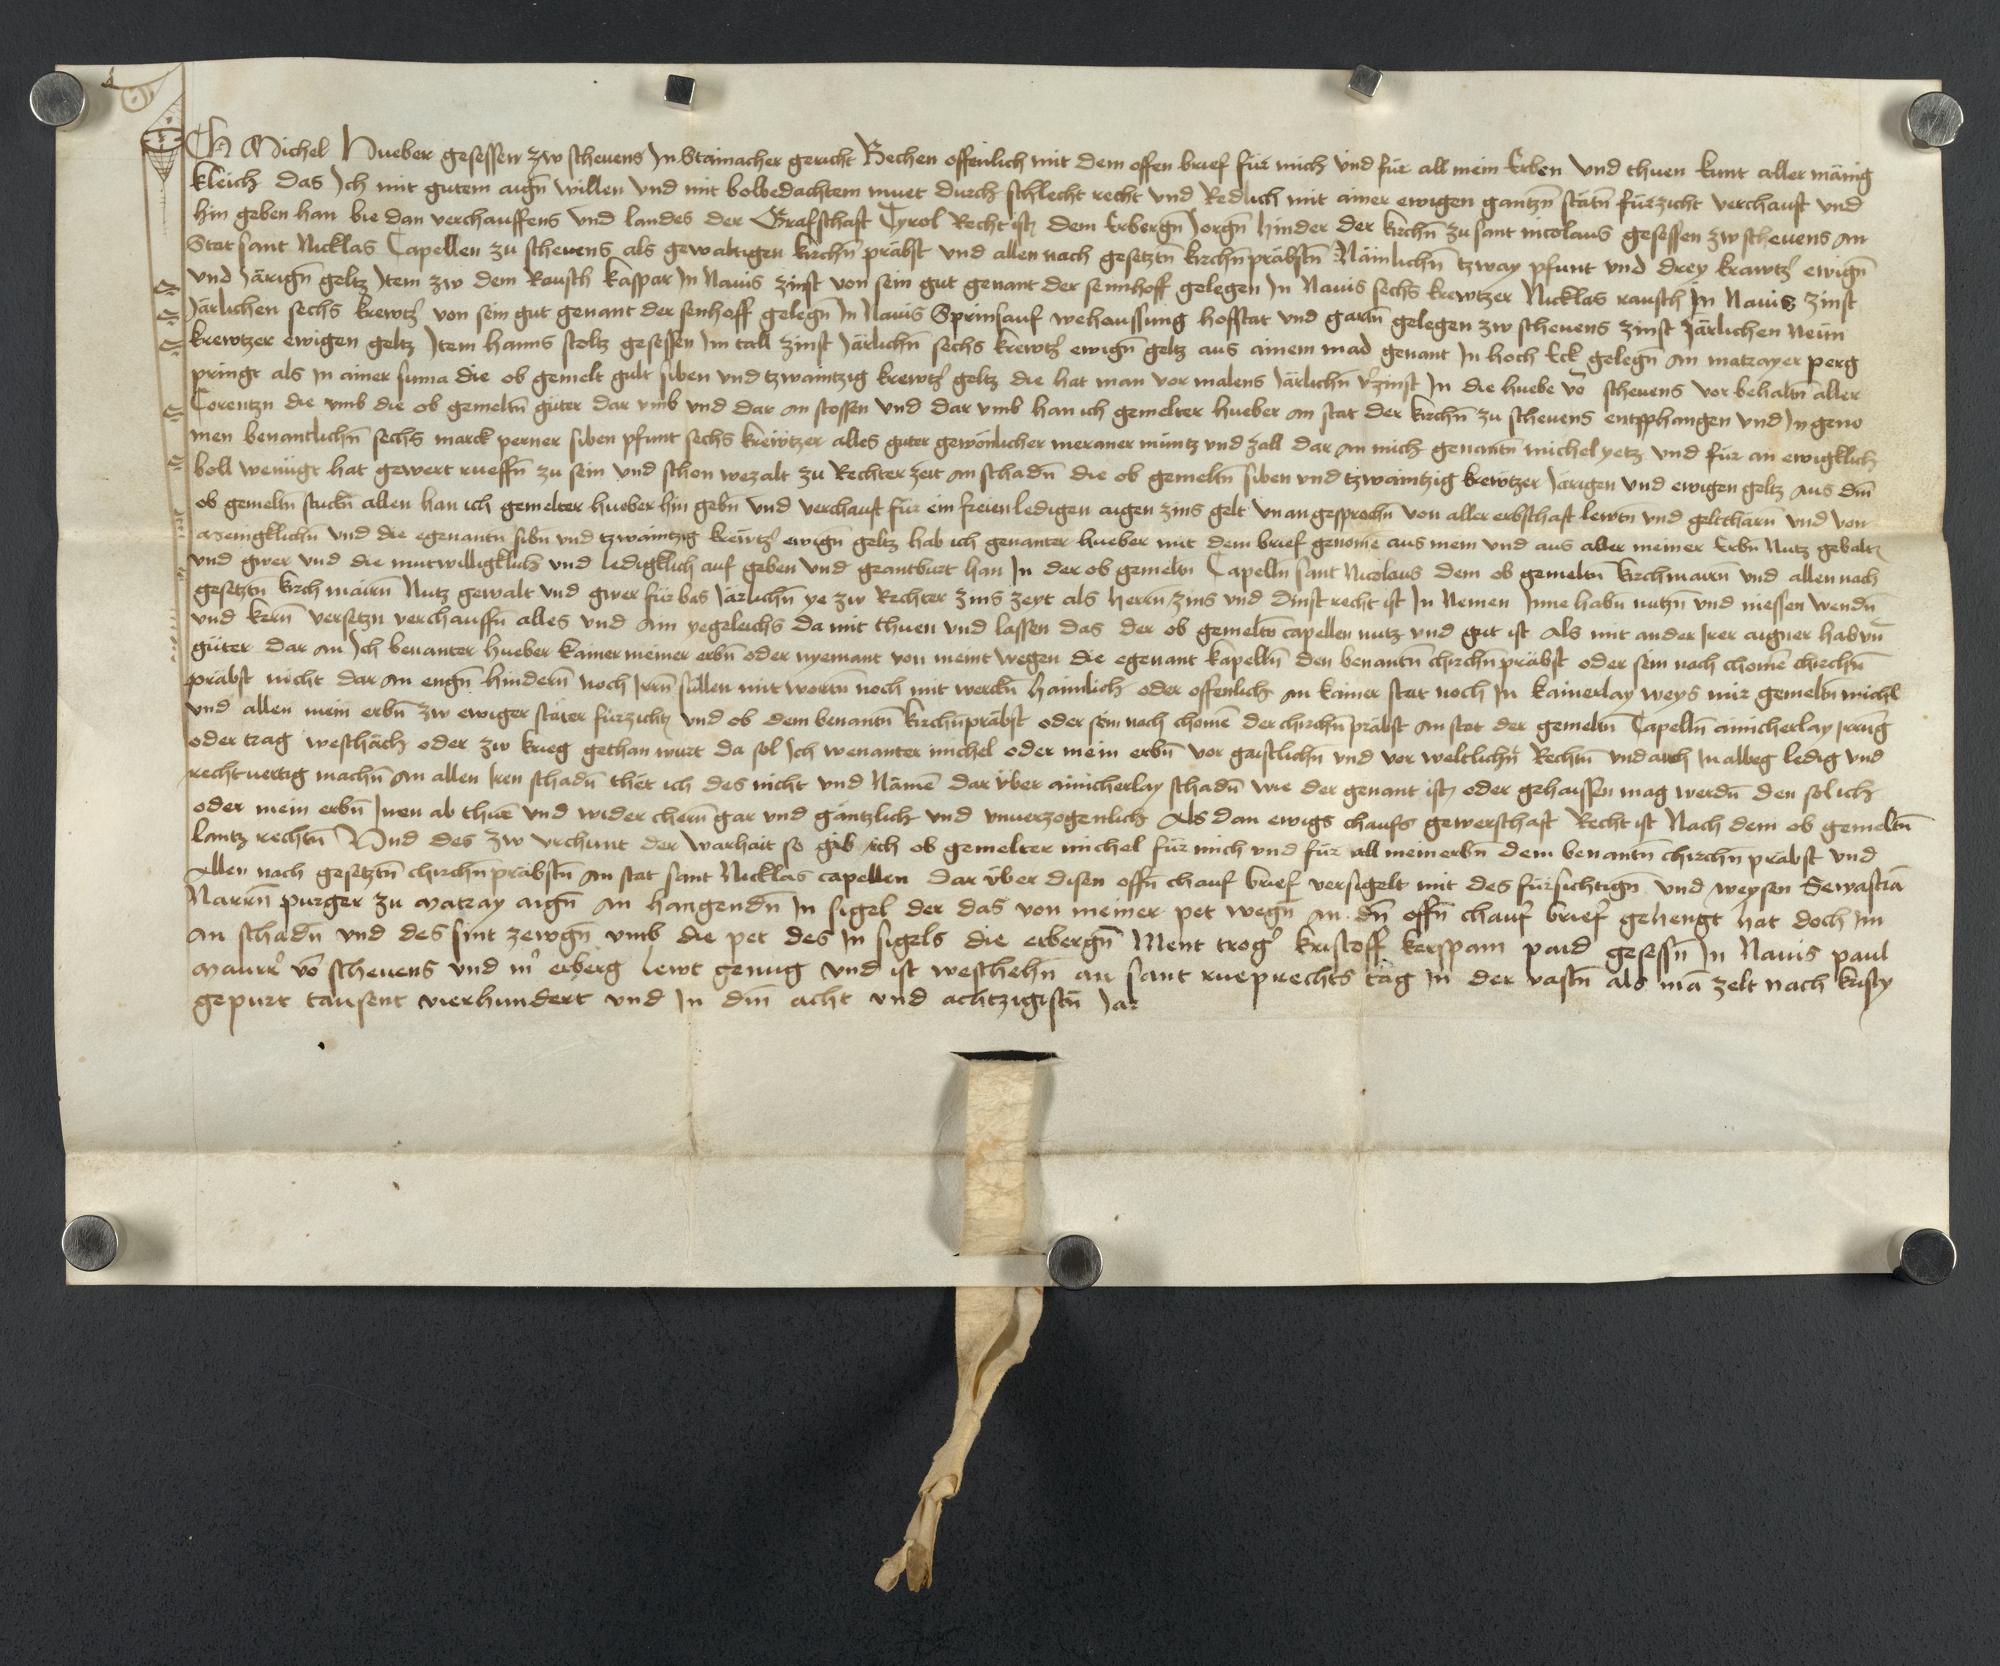 Ich Michel Hueber gesessen zw scheuens In Stainacher gericht Bechen offenlich mit dem offen brief für mich vnd für all mein Erben Vnd thuen kunt aller mänig
kleich das Ich mit gutem aigñ willen Vnd mit bolbedachtem muet durch schlecht recht vnd Redlich mit ainer ewigen gantzñ stätñ fürzicht verchauft vnd
hin geben han bie dan verchauffens vnd landes der Grafschaft Tyrol Recht ist dem Erbergñ Jorgñ hinder der kirchñ zu sant nicolaus gesessen zw scheuens an
Stat sant Nicklas Capellen zu scheuens als gewaltigen kirchñ präbst vnd allen nach gesetztñ kirchñpräbstñ Nämlichñ tzway pfunt vnd drey krawtz' ewigñ
vnd Järigñ geltz Item zw dem Rausch kaspar In Nauis zinst von sein gut genant der sennhoff gelegen In Nauis sechs krewtzer Nicklas rausch In Nauis zinst
Järlichen sechs krewtz' von sein gut genant der senhoff gelegñ In Nauis Sprinsauf wehaussung hofstat vnd gartñ gelegen zw scheuens zinst Järlichen Neün
krewtzer ewigen geltz Item hanns stoltz gesessen Im tall zinst Järlichñ sechs krewtz' ewigñ geltz aus ainem mad genant In hoch Eck gelegñ An matrayer perg
pringt als In ainer suma die ob gemelt gült siben vnd tzwaintzig krewtz' geltz die hat man vor malens Järlichñ v'zinst In die huebe võ scheuens vor behaltñ aller
Corentzn die vmb die ob gemeltñ güter dar vmb vnd dar an stossen vnd dar vmb han ich gemelter hueber an stat der kirchñ zu scheuens entpphangen vnd In geno
men benantlichñ sechs marck perner siben pfunt sechs krewtzer alles guter gewönlicher meraner müntz vnd zall dar an mich genantñ michel yetz vnd für an ewigklich
boll wenügt hat gewert rueffñ zu sein vnd schon wezalt zu Rechter zeit an schadñ die ob gemeltñ siben vnd tzwaintzig krewtzer Järigen vnd ewigen geltz aus dñ
ob gemeltñ stuckñ allen han ich gemelter hueber hin gebñ vnd verchauft für ein freien ledigen aigen zins gelt vnangesprochñ von aller erbschaft lewtñ vnd geltthärñ vnd von
Meingklichñ vnd die egenantñ sibñ vnd tzwaintzig krewtz' ewigñ geltz hab ich genanter hueber mit dem brief genome aus mein vnd aus aller meiner Erbñ Nutz gebalt
vnd gwer vnd die mutwilligklich vnd ledigklich auf geben vnd geantburt han In der ob gemeltñ Capellñ sant Nicolaus dem ob gemeltñ kirchmairñ vnd allen nach
gesetztñ kirchmairñ Nutz gewalt vnd gwer für bas Järlichñ ye zw Rechter zins zeyt als herrñ zins vnd dinst recht ist In Nemen Inne habñ nutzñ vnd niessen wendñ
vnd kerñ versetzñ verchauffñ alles vnd Am yegeleichs da mit thuen vnd lassen das der ob gemeltñ capellen nutz vnd gut ist Als mit ander Irer aigner hab vñ
güter dar an Ich benanter hueber kainer meiner erbñ oder nyemant von meint wegen die egenant kapellñ den benantñ chirchñpräbst oder sein nach chomẽ chirchñ
präbst nicht dar an engñ hinderñ noch Irrñ süllen mit wortñ noch mit werckñ haimlich oder offenlich an kainer stat noch In kainerlay weys mir gemeltñ michl
vnd allen mein erbñ zw ewiger stäter fürzicht vnd ob dem benantñ kirchñpräbst oder sein nach chomẽ der chirchñ präbst an stat der gemeltñ Capellñ ainicherlay Irrung
oder trag weschäch oder zw krieg gethan wurt da sol Ich wenanter michel oder mein erbñ vor gaistlichñ vnd vor weltlichñ Rechtñ vnd auch In allbeg ledig vnd
rechtuertig machñ an allen Iren schadñ thet ich des nicht vnd Nämẽ dar über ainicherlay schadñ wie der genant ist oder gehaissen mag werdñ den sol ich
oder mein erbñ Inen ab thuen vnd wider cherñ gar vnd gäntzlich vnd vnuerzogenlich Als dan ewigs chaufs gewerschaft Recht ist Nach dem ob gemeltñ
lantz rechtñ Vnd des zw vrchunt der warhait so gib ich ob gemelter michel für mich vnd für all mein erbñ dem benantñ chirchñ präbst vnd
Allen nach gesetztñ chirchñpräbstñ an stat sant Nicklas capellen dar über disen offñ chauf brief versigelt mit des fürsichtigñ vnd weysen Sewastiã
Narrñ purger zu Matray aigñ an hangendñ In sigel der das von meiner pet wegñ an dñ offñ chauf brief gehengt hat doch Im
an schadñ vnd des sint zewgñ vmb die pet des In sigels die erbergñ Ment trog' kristoff kerspam paid gesessñ In Nauis paul
Maurr' võ scheuens vnd m' erberg lewt genug vnd ist weschehñ an sant rueprechts tag In der vastñ als mã zelt nach kristy
gepurt tausent vierhundert vnd In dñ acht vnd achtzigistñ Jar